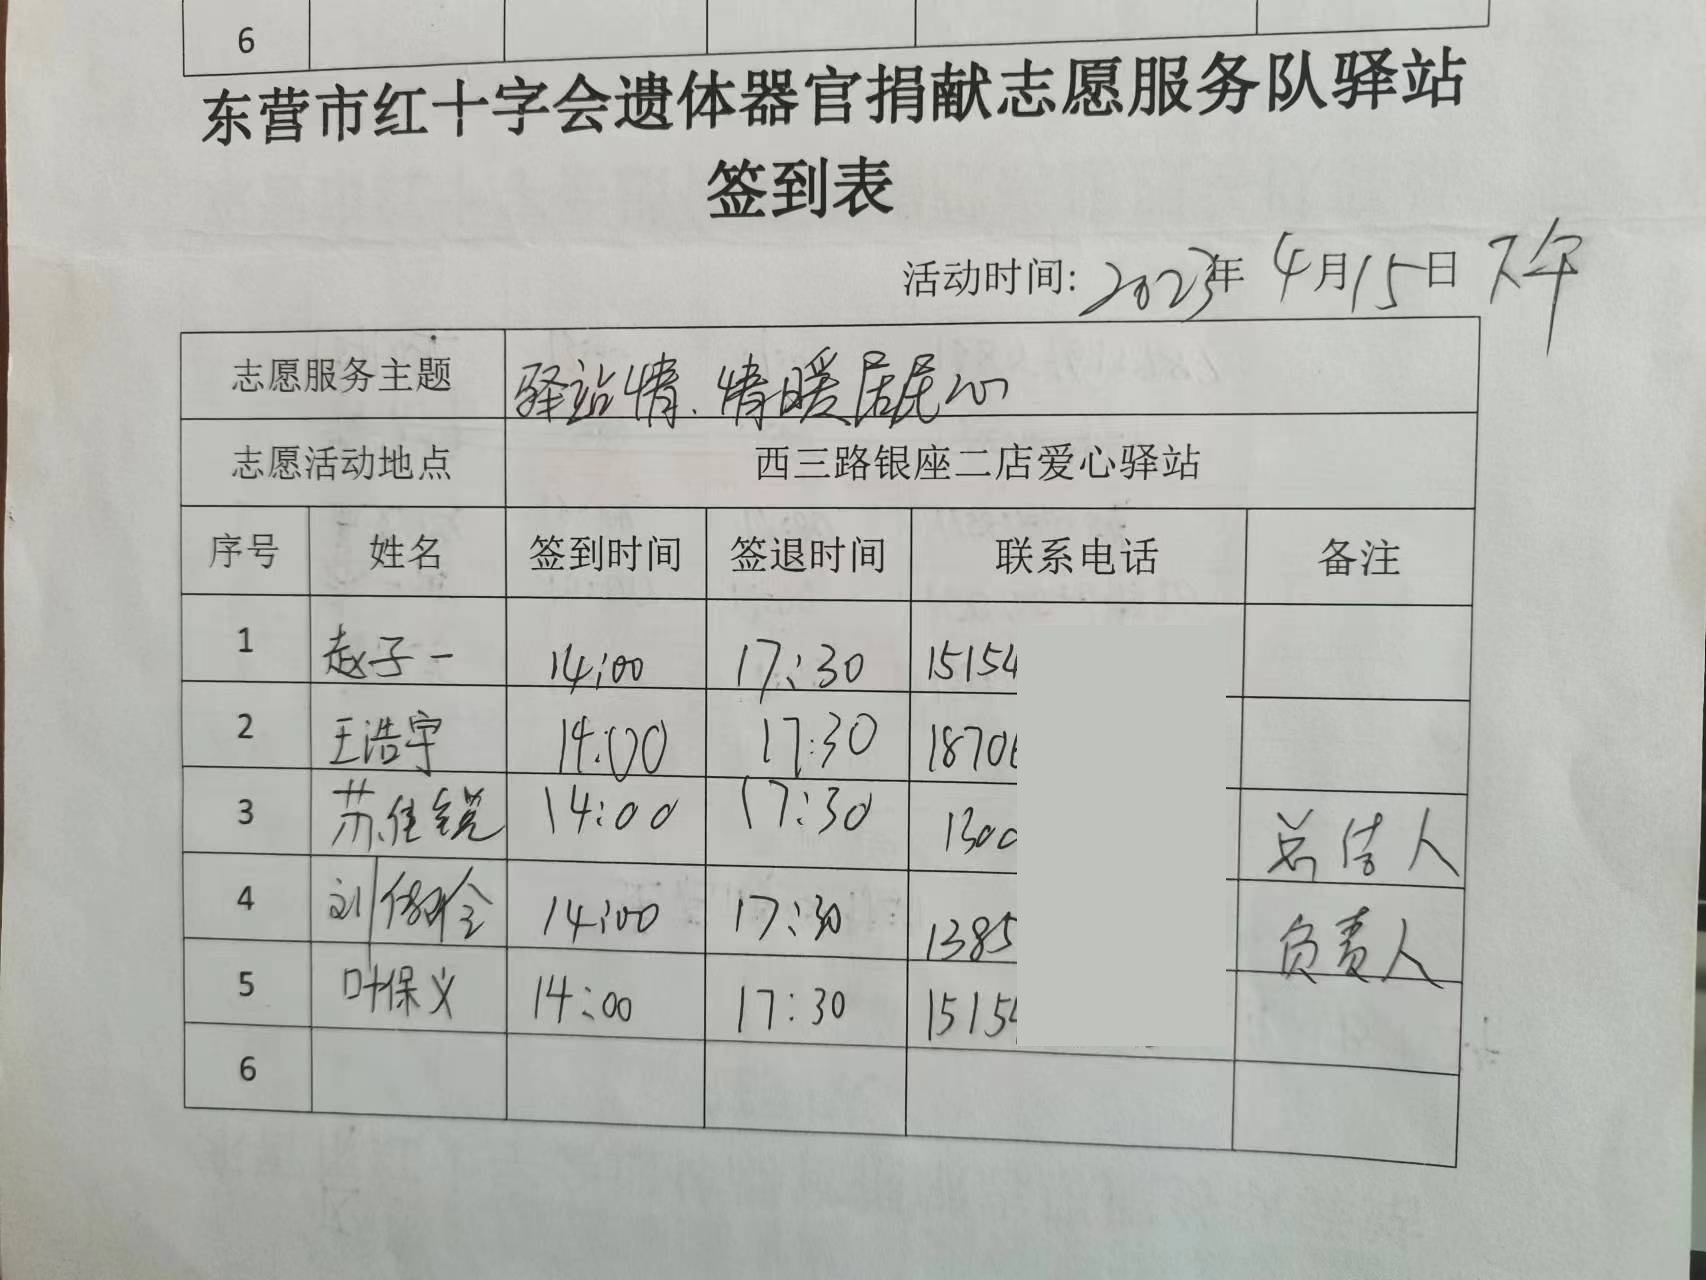 6
东营市红十字会遗体器官捐献志愿服务队驿站
签到表
活动时间: 2023年 4月15日 下午
志愿服务主题 驿站情.情暖居民心
志愿活动地点 西三路银座二店爱心驿站
序号 姓名 签到时间 签退时间 联系电话 备注
1 赵子一 14:00 17:30 15154
2 王浩宇 14:00 17:30 18706
3 苏佳锐 14:00 17:30 1300 总结人
4 刘 14:00 17:30 1385 负责人
5 叶保义 14:00 17:30 15154
6